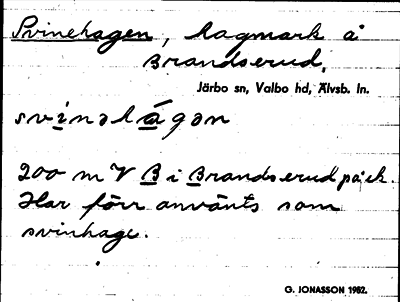 Svinehagen, hagmark å
Brandserud.
Järbo sn, Valbo hd, Älvsb. ln.
svinəhágən
200 m V B i Brandserud på ek.
Har förr använts som
svinhage.
G. JONASSON 1982.